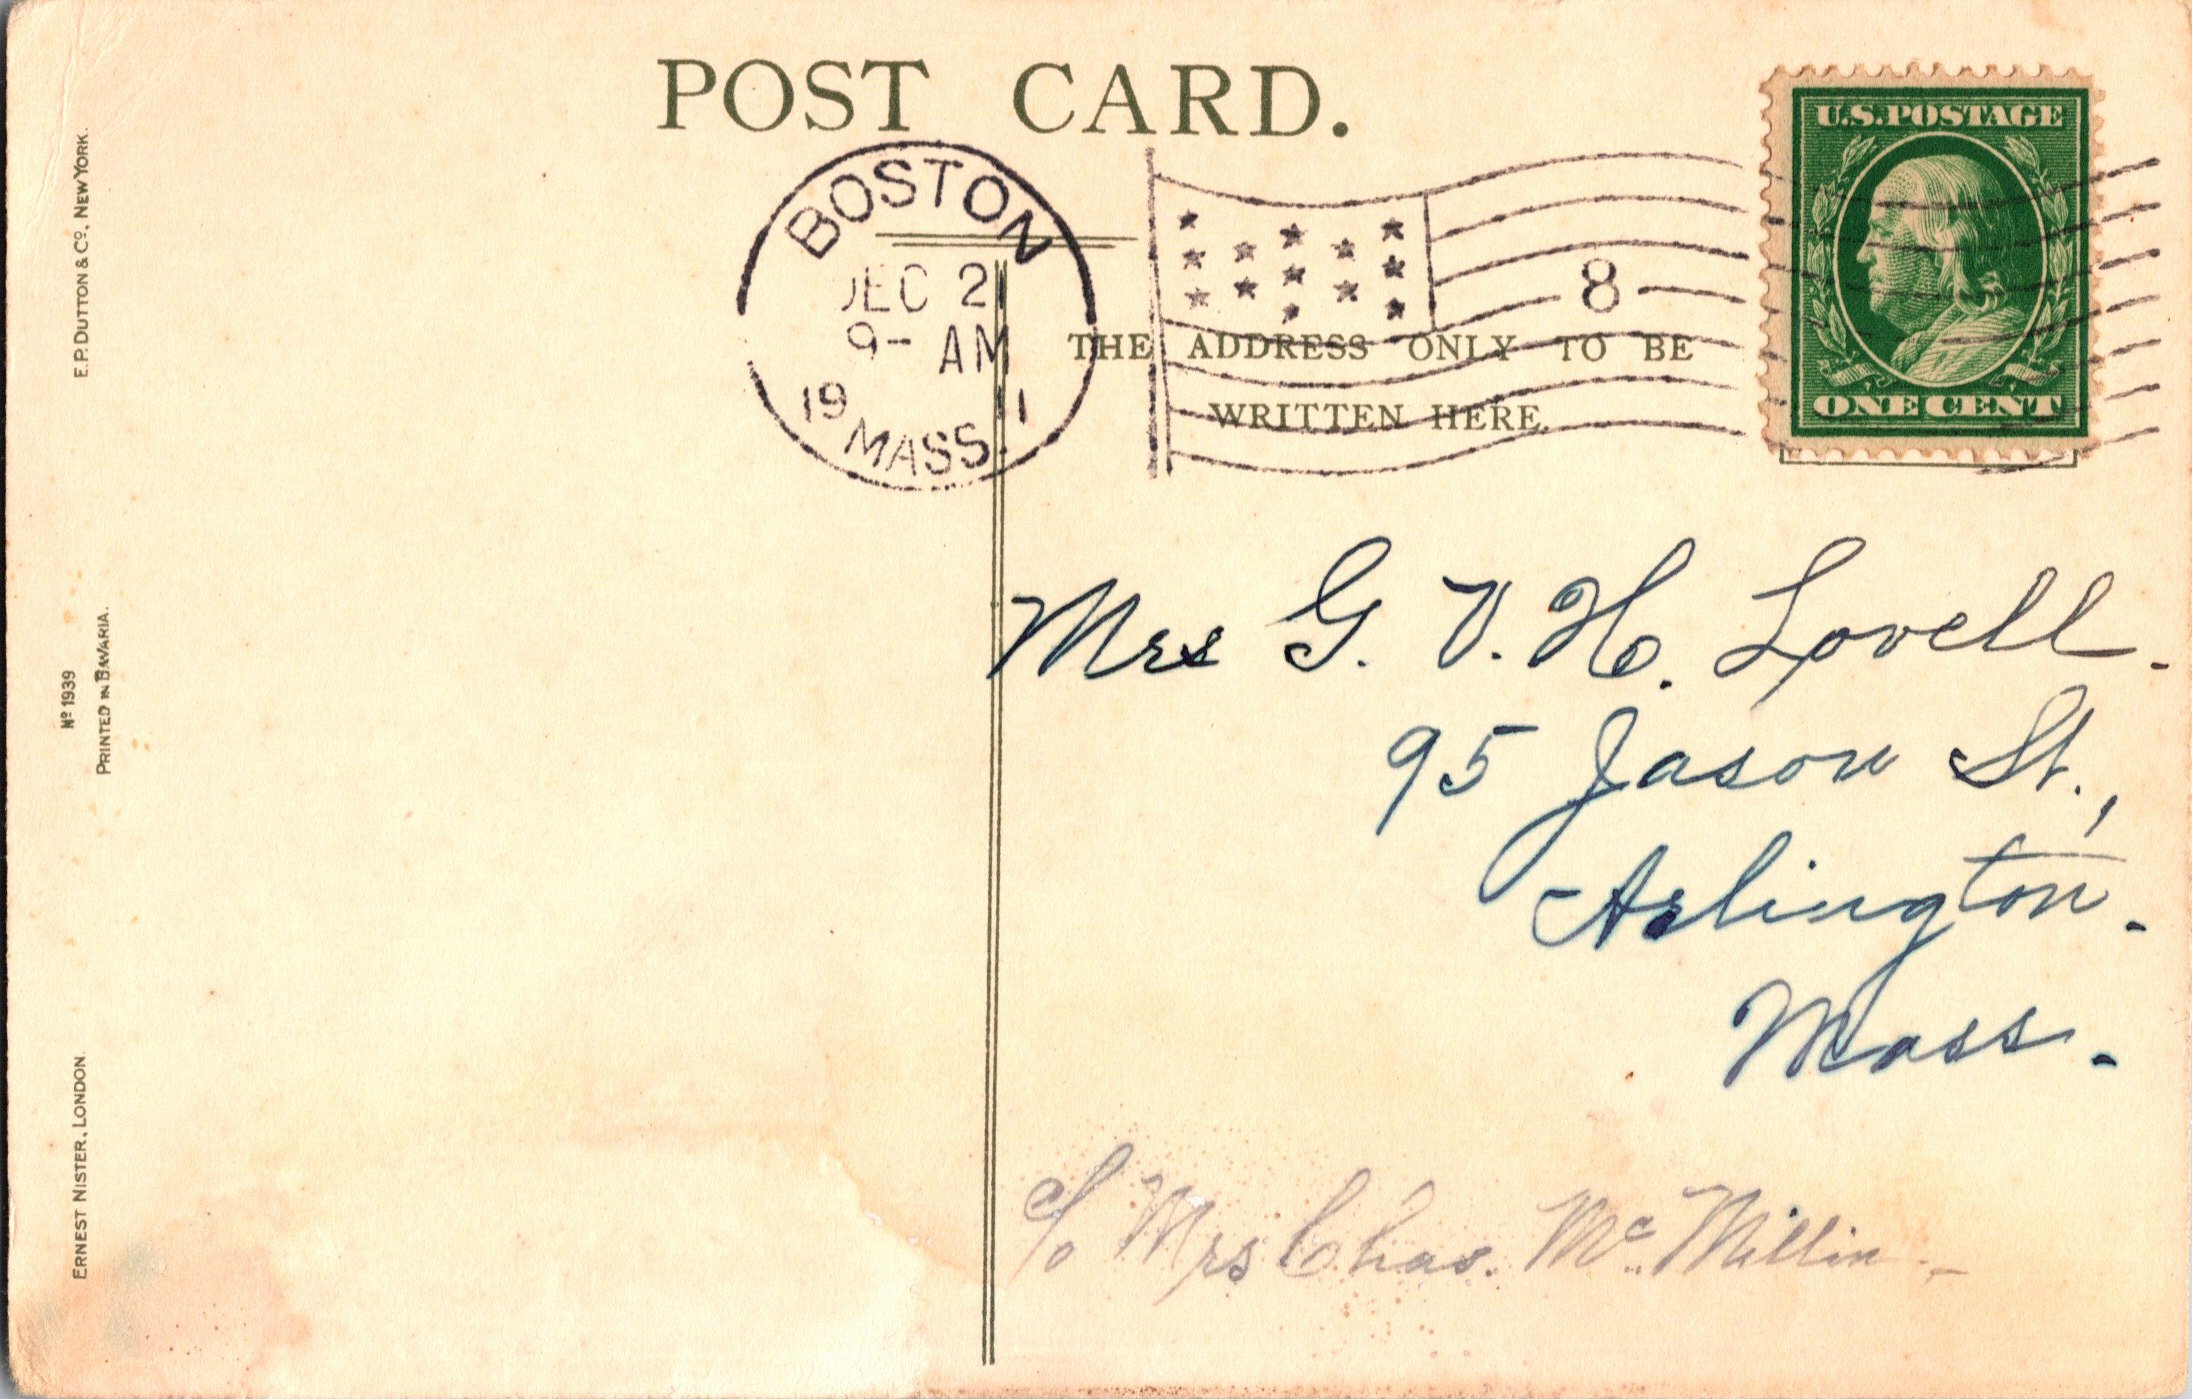 POST CARD.
BOSTON
DEC 2
9- AM
19 11
MASS.
8
U.S. POSTAGE
ONE CENT
THE ADDRESS ONLY TO BE
WRITTEN HERE.
E. P. DUTTON & Co. NEW YORK.
No 1939
PRINTED IN BAVARIA.
ERNEST NISTER, LONDON
Mrs G. V. H. Lovell.
95 Jason St.,
Arlington.
Mass.
c/o Mrs Chas. Mc Millin -